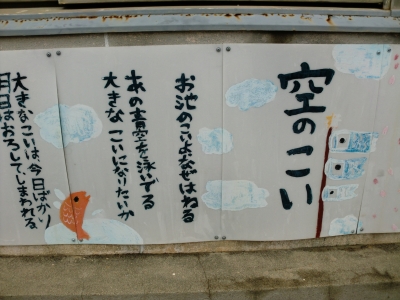 空のこい
お池のこいよなぜはねる
あの青空を泳いでる
大きなこいになりたいか
大きなこいは、今日ばかり
月日はおろしてしまわれる。